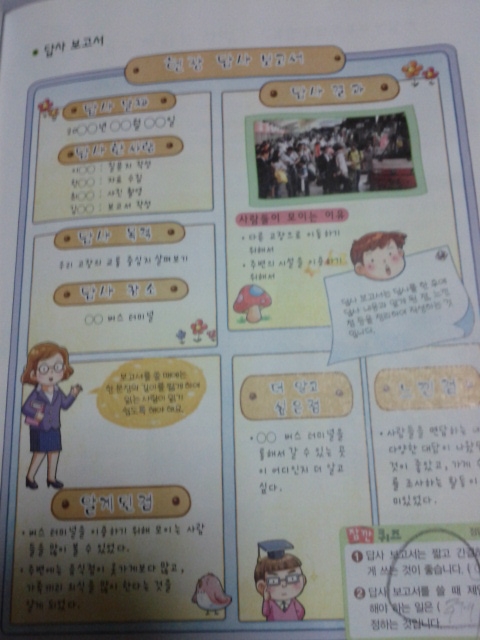 답사 보고서
현장 답사 보고서
답사 날짜
20○○년 ○○월 ○○일
답사한 사람
이○○ : 질문지 작성
한○○ : 자료 수집
최○○ : 사진 촬영
김○○ : 보고서 작성
답사 목적
우리 고장의 교통 중심지 살펴보기
답사 장소
○○ 버스 터미널
보고서를 쓸 때에는
한 문장의 길이를 짧게 하여
읽는 사람이 알기
쉽도록 해야 해요.
알게 된 점
• 버스 터미널을 이용하기 위해 모이는 사람
들을 많이 볼 수 있었다.
• 주변에는 음식점이 옷가게보다 많고,
가족끼리 외식을 많이 한다는 것을
알게 되었다.
답사 결과
사람들이 모이는 이유
• 다른 고장으로 이동하기
위해서
• 주변의 시설을 이용하기
위해서
답사 보고서는 답사를 한 후에
답사 내용과 알게 된 점, 느낀
점 등을 정리하여 작성하는 것
입니다.
더 알고
싶은 점
• ○○ 버스 터미널을
통해서 갈 수 있는 곳
이 어디인지 더 알고
싶다.
느낀 점
• 사람들을 면담하는 내
다양한 대답이 나왔
것이 좋았고, 가게 수
를 조사하는 활동이
미있었다.
잠깐 퀴즈
❶ 답사 보고서는 짧고 간결
게 쓰는 것이 좋습니다. (
❷ 답사 보고서를 쓸 때 제일
해야 하는 일은 (
정하는 것입니다.